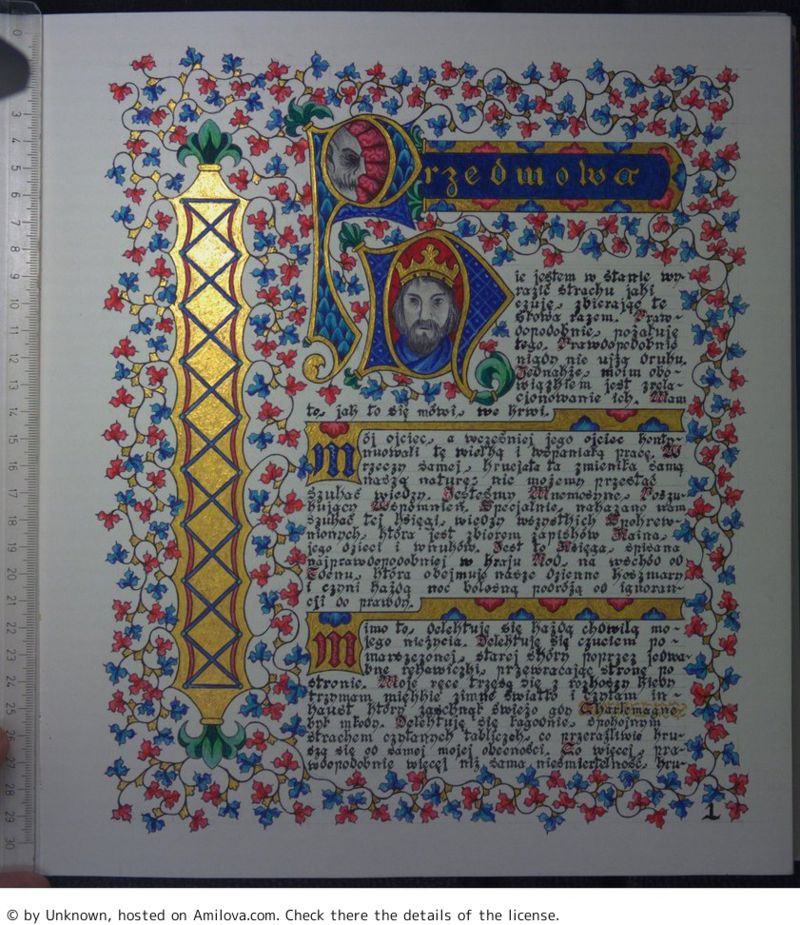 Przedmowa
Nie jestem w stanie wy-
razić strachu jaki
czuję, zbierając te
słowa razem. Praw-
dopodobnie, pożałuję
tego. Prawdopodobnie
nigdy nie ujżą druku.
Jednakże, moim obo-
wiązkiem jest zrela-
cjonowanie ich. Mam
to, jak to się mówi, we krwi.
Mój ojciec, a wcześniej jego ojciec konty-
nuowali tę wielką i wspaniałą pracę. W
rzeczy samej, krucjata ta zmieniła samą
naszą naturę, nie możemy przestać
szukać wiedzy. Jesteśmy Mnemosyne, Poszu-
kujący Wspomnień. Specjalnie, nakazano nam
szukać tej księgi, wiedzy wszystkich Spokrew-
nionych, która jest zbiorem zapisków Kaina,
jego dzieci i wnuków. Jest to Księga, spisana
najprawdopodobniej w kraju Nod, na wschód od
Edenu, która obejmuje nasze dzienne koszmary
i czyni każdą noc bolesną podróżą od ignoran-
cji do prawdy.
Mimo to, delektuję się każdą chwilą mo-
jego nieżycia. Delektuję się czuciem po-
marszczonej, starej skóry poprzez jedwa-
bne rękawiczki, przewracając stronę po
stronie. Moje ręce trzęsą się z rozkoszy kiedy
trzymam miękkie zimne światło i czytam in-
kaust który zaschnął świeżo gdy Charlemagne
był młody. Delektuję się łagodnie, spokojnym
strachem czytanych tabliczek, co przeraźliwie kru-
szą się od samej mojej obecności. Co więcej, pra-
wdopodobnie więcej niż sama nieśmiertelność, kru-
1
0
3
4
5
6
7
8
9
10
11
12
13
14
15
16
17
18
19
20
21
22
23
24
25
26
27
28
29
30
© by Unknown, hosted on Amilova.com. Check there the details of the license.